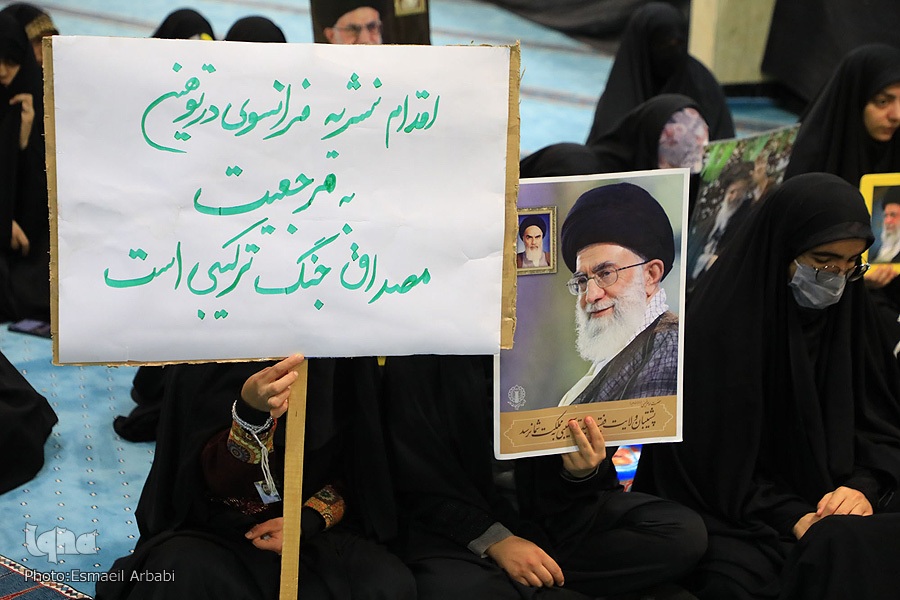 اقدام نشریه فرانسوی در توهین
به مرجعیت
مصداق جنگ ترکیبی است
پشتیبان ولایت فقیه مملکت شما نرسد
iqna
Photo:Esmaeil Arbabi